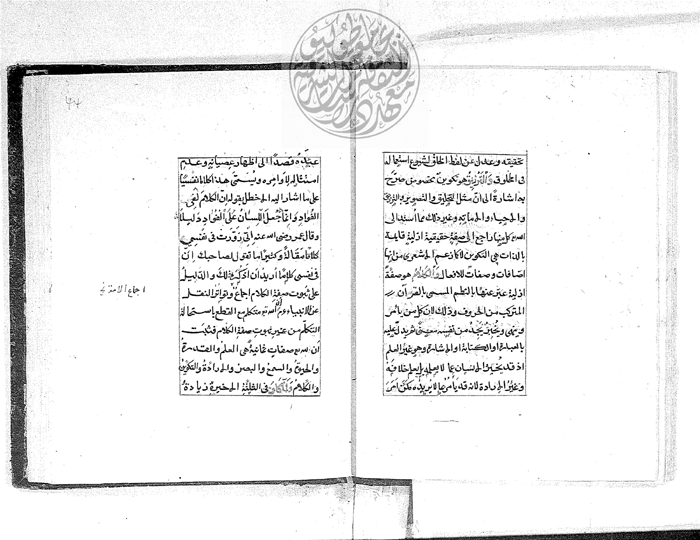 تحقيقه وعدل عن لفظ الخلق لشيوع استعماله
فى المخلوق والترزيق هو تكوين مخصوص صرّح
به اشارة الى ان مثل التخليق والتصوير والترزيق
والاحياء والاماتة وغير ذلك مما اسند الى
الله تع كل منها راجع الى صفة حقيقية ازلية قايمة
بالذات هى التكوين لا كما زعم الاشعرى من انها
اضافات وصفات للافعال والكلام هو صفة
ازلية عبّر عنها بالنظم المسمى بالقرآن
المتركب من الحروف وذلك لان كل من يأمر
وينهى ويخبر يجد من نفسه معنى ثم يدل عليه
بالعبارة او الكتابة او الاشارة وهو غير العلم
اذ قد يخبر الانسان عما لا يعلم بل يعلم خلافه
وغير الارادة لانه قد يأمر بما لا يريده كمن امر
عبده قصدا الى اظهار عصيانه وعدم
امتثاله لاوامره ويسمى هذا كلاما نفسيا
على ما اشار اليه الاخطل بقوله ان الكلام لفى
الفؤاد وانما جعل اللسان على الفؤاد دليلا
وقال عمر رضى الله عنه انى زوّرت فى نفسى
كلاما مقالة وكثيرا ما تقول لصاحبك ان
فى نفسى كلاما اريد ان اذكره لك والدليل
على ثبوت صفة الكلام اجماع وتواتر النقل
عن الانبياء انه متكلم مع القطع باستحالة
التكلم من غير ثبوت صفة الكلام فثبت
ان لله تع صفات ثمانية هى العلم والقدرة
والحيوة والسمع والبصر والارادة والتكوين
والكلام ولما كان فى الثلثة الاخيرة زيادة